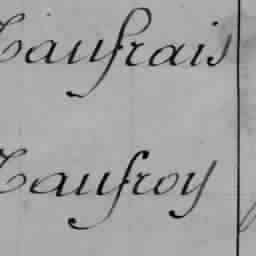 Taufrais
Taufroy